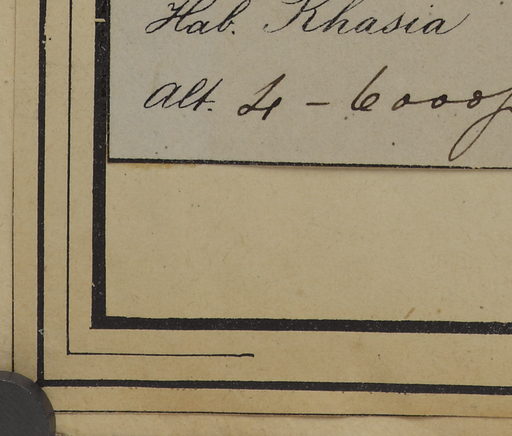 Hab. Khasia
Alt. 4 - 6000 f